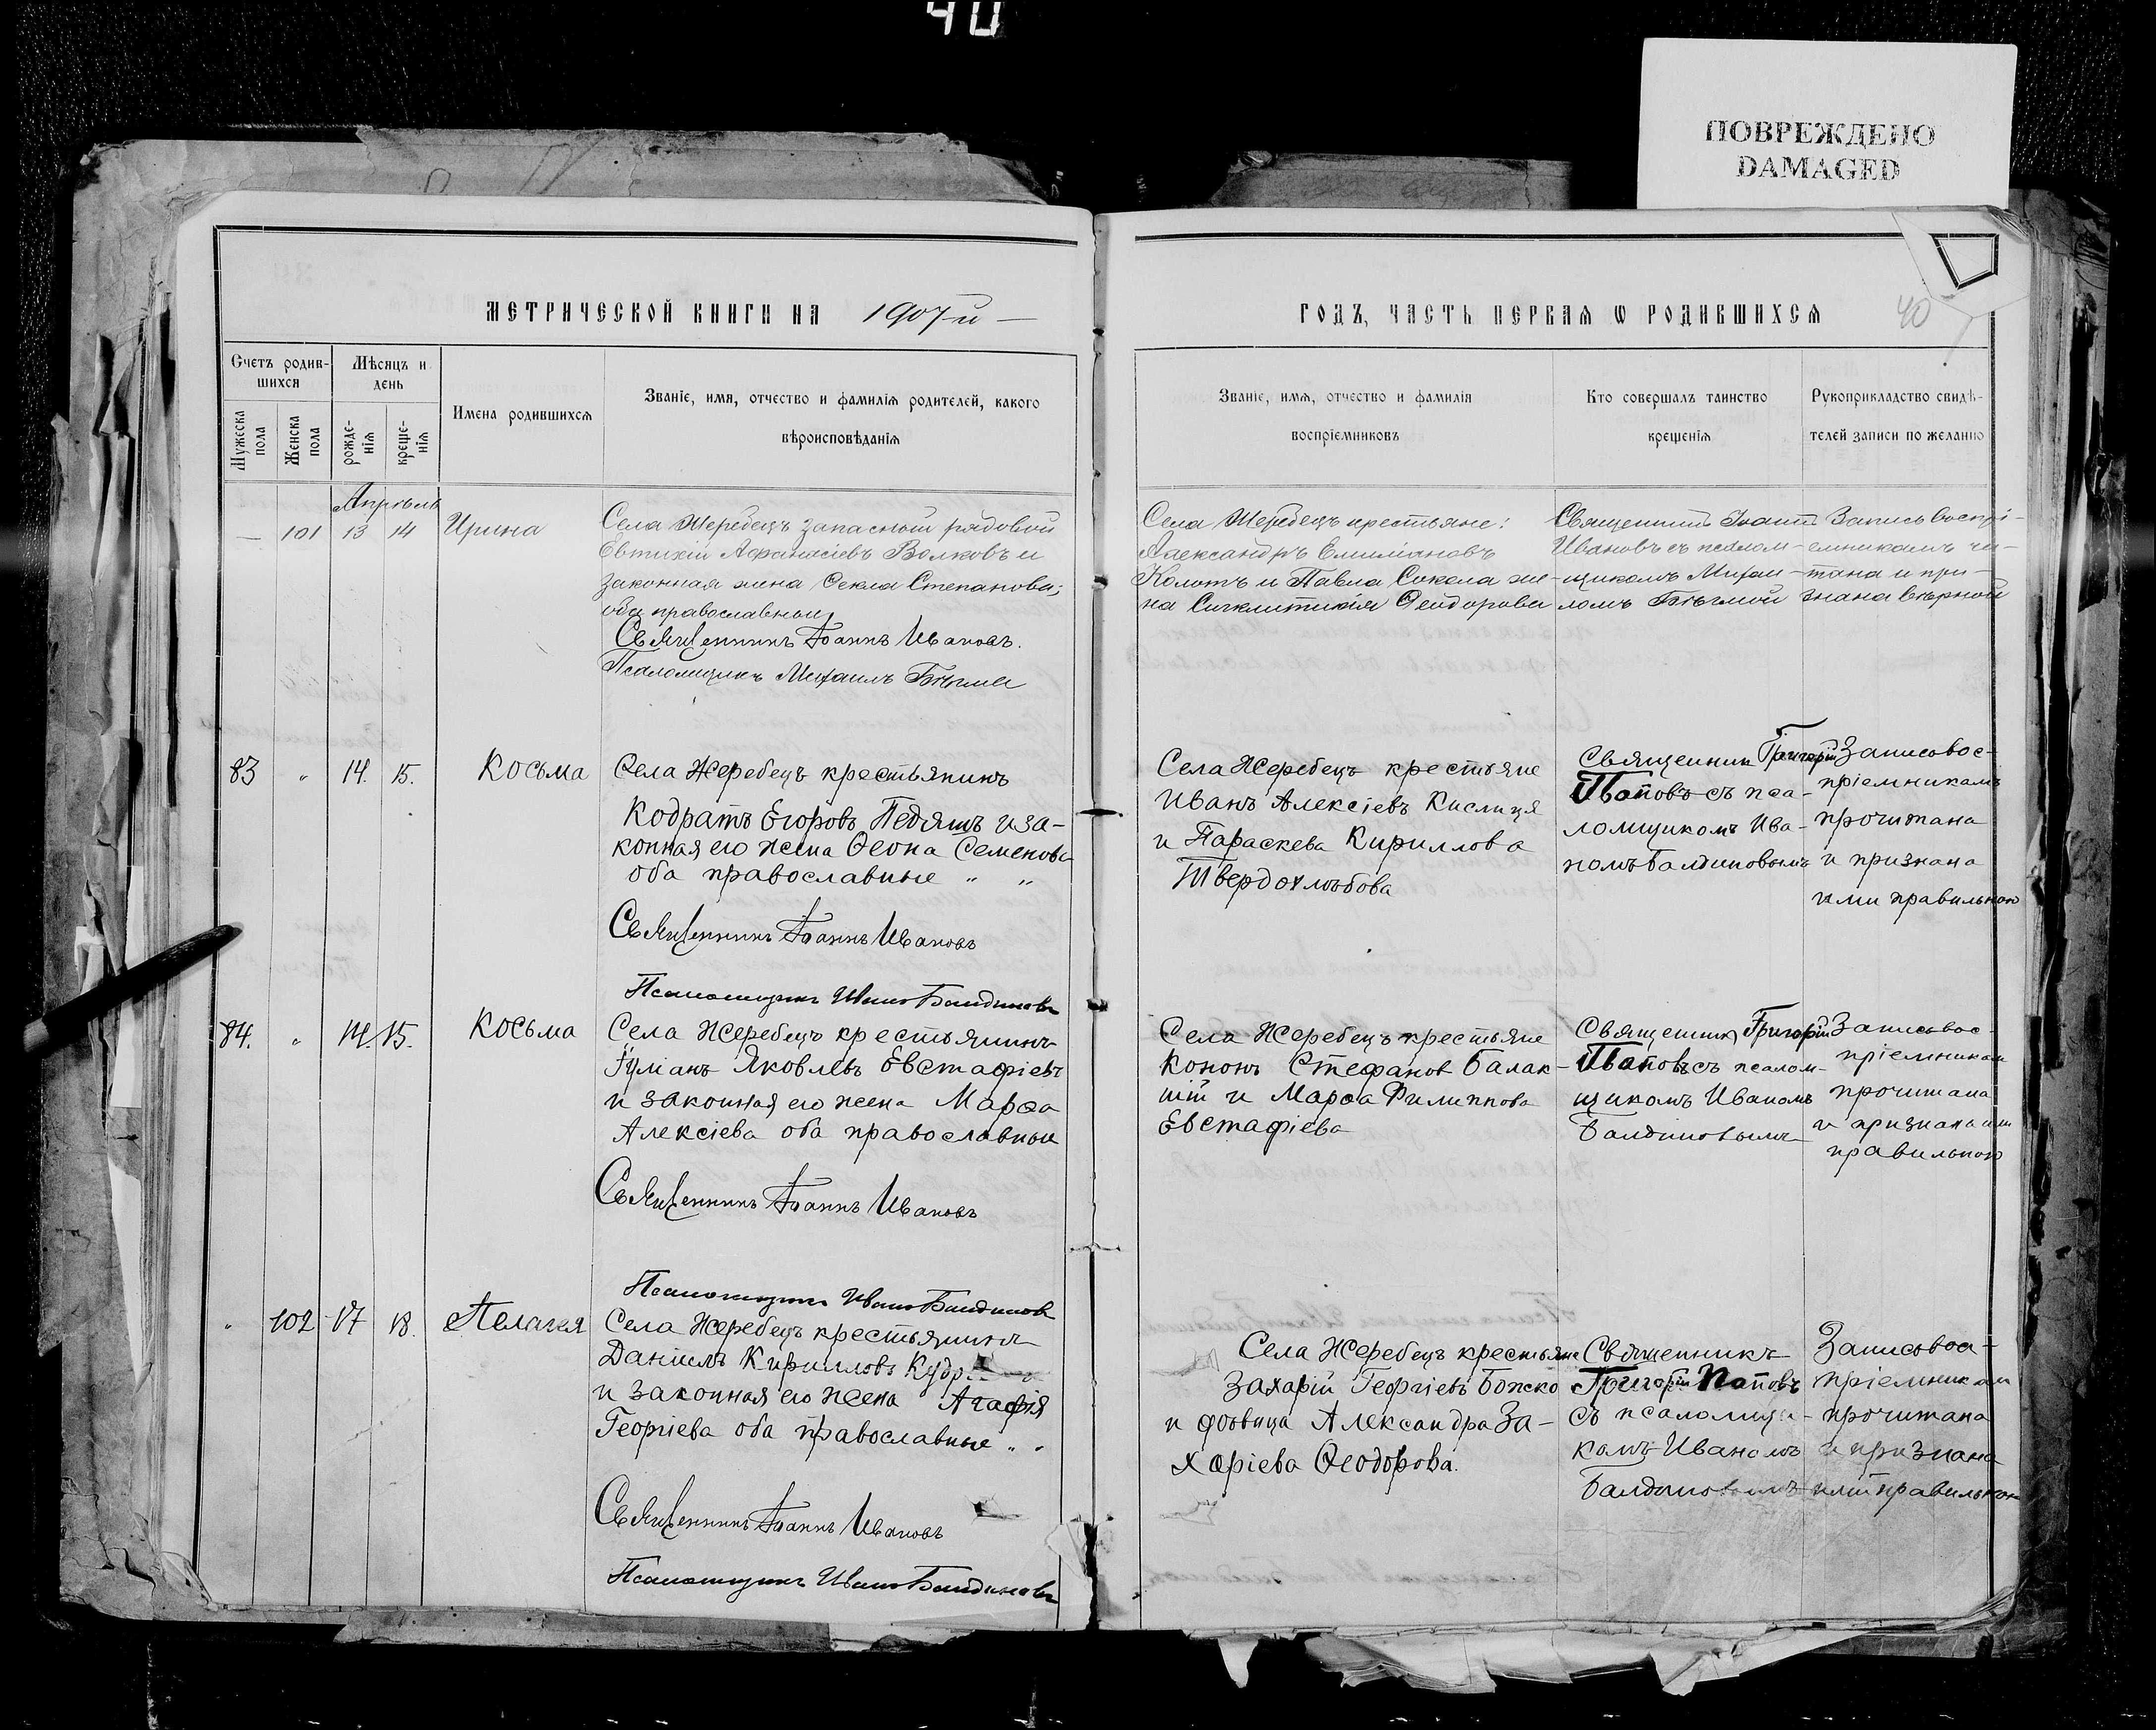 40
ПОВРЕЖДЕНО
DAMAGED
МЕТРИЧЕСКОЙ КНИГИ НА 1907-й
ГОДЪ, ЧАСТЬ ПЕРВАЯ Ѡ РОДИВШИХСЯ
40
Счетъ родив-
шихся
Мѣсяцъ и
день
Мужеска
пола
Женска
пола
рожде-
нія
креще-
нія
Имена родившихся
Званіе, имя, отчество и фамилія родителей, какого
вѣроисповѣданія
Званіе, имя, отчество и фамилія
воспріемниковъ
Кто совершалъ таинство
крещенія
Рукоприкладство свидѣ-
телей записи по желанію
Апрѣль
— 101 13 14 Ирина
Села Жеребецъ запасный рядовой
Евтихій Аѳанасіевъ Волковъ и
законная жена Ѳекла Степанова;
оба православные
Священникъ Іоаннъ Ивановъ.
Псаломщикъ Михаилъ Бѣлый
Села Жеребецъ крестьяне:
Александръ Емиліановъ
Колотъ и Павла Сокола же-
на Сигклитикія Ѳеодорова
Священникъ Іоаннъ
Ивановъ съ псалом-
щикомъ Михаи-
ломъ
Запись воспрі-
емникамъ чи-
тана и при-
знана вѣрной
83 " 14. 15. Косьма
Села Жеребецъ крестьянинъ
Кодратъ Егоровъ Педяшъ и за-
конная его жена Ѳеона Семенова
оба православные " "
Священникъ Іоаннъ Ивановъ
Псаломщикъ Иванъ Балдиновъ
Села Жеребецъ крестьяне
Иванъ Алексіевъ Кислиця
и Параскева Кириллова
Твердохлѣбова
Священник Григорій
Поповъ съ пса-
ломщикомъ Ива-
номъ Балдиновымъ
Запись вос-
пріемникамъ
прочитана
и признана
ими правильною
84. " 14. 15. Косьма
Села Жеребецъ крестьянинъ
Іуліанъ Яковлевъ Евстафіевъ
и законная его жена Марѳа
Алексіева оба православные
Священникъ Іоаннъ Ивановъ
Псаломщикъ Иванъ Балдиновъ
Села Жеребецъ крестьяне
Кононъ Стефанов Балак-
шій и Марѳа Филиппова
Евстафіева
Священник Григорій
Поповъ съ псалом-
щикомъ Иваномъ
Балдиновымъ
Запись вос-
пріемникам
прочитана
и признана ими
правильною
" 102 17 18. Пелагея
Села Жеребецъ крестьянинъ
Даніилъ Кирилловъ
и законная его жена Агафія
Георгіева оба православные " "
Священникъ Іоаннъ Ивановъ
Псаломщикъ Иванъ Балдиновъ
Села Жеребецъ крестьяне
Захарій Георгіевъ Божко
и дѣвица Александра За-
харіева Ѳеодорова.
Священникъ
Григорій Поповъ
съ псаломщи-
комъ Иваномъ
Балдиновымъ
Запись вос-
пріемникам
прочитана
и признана
ими правильною